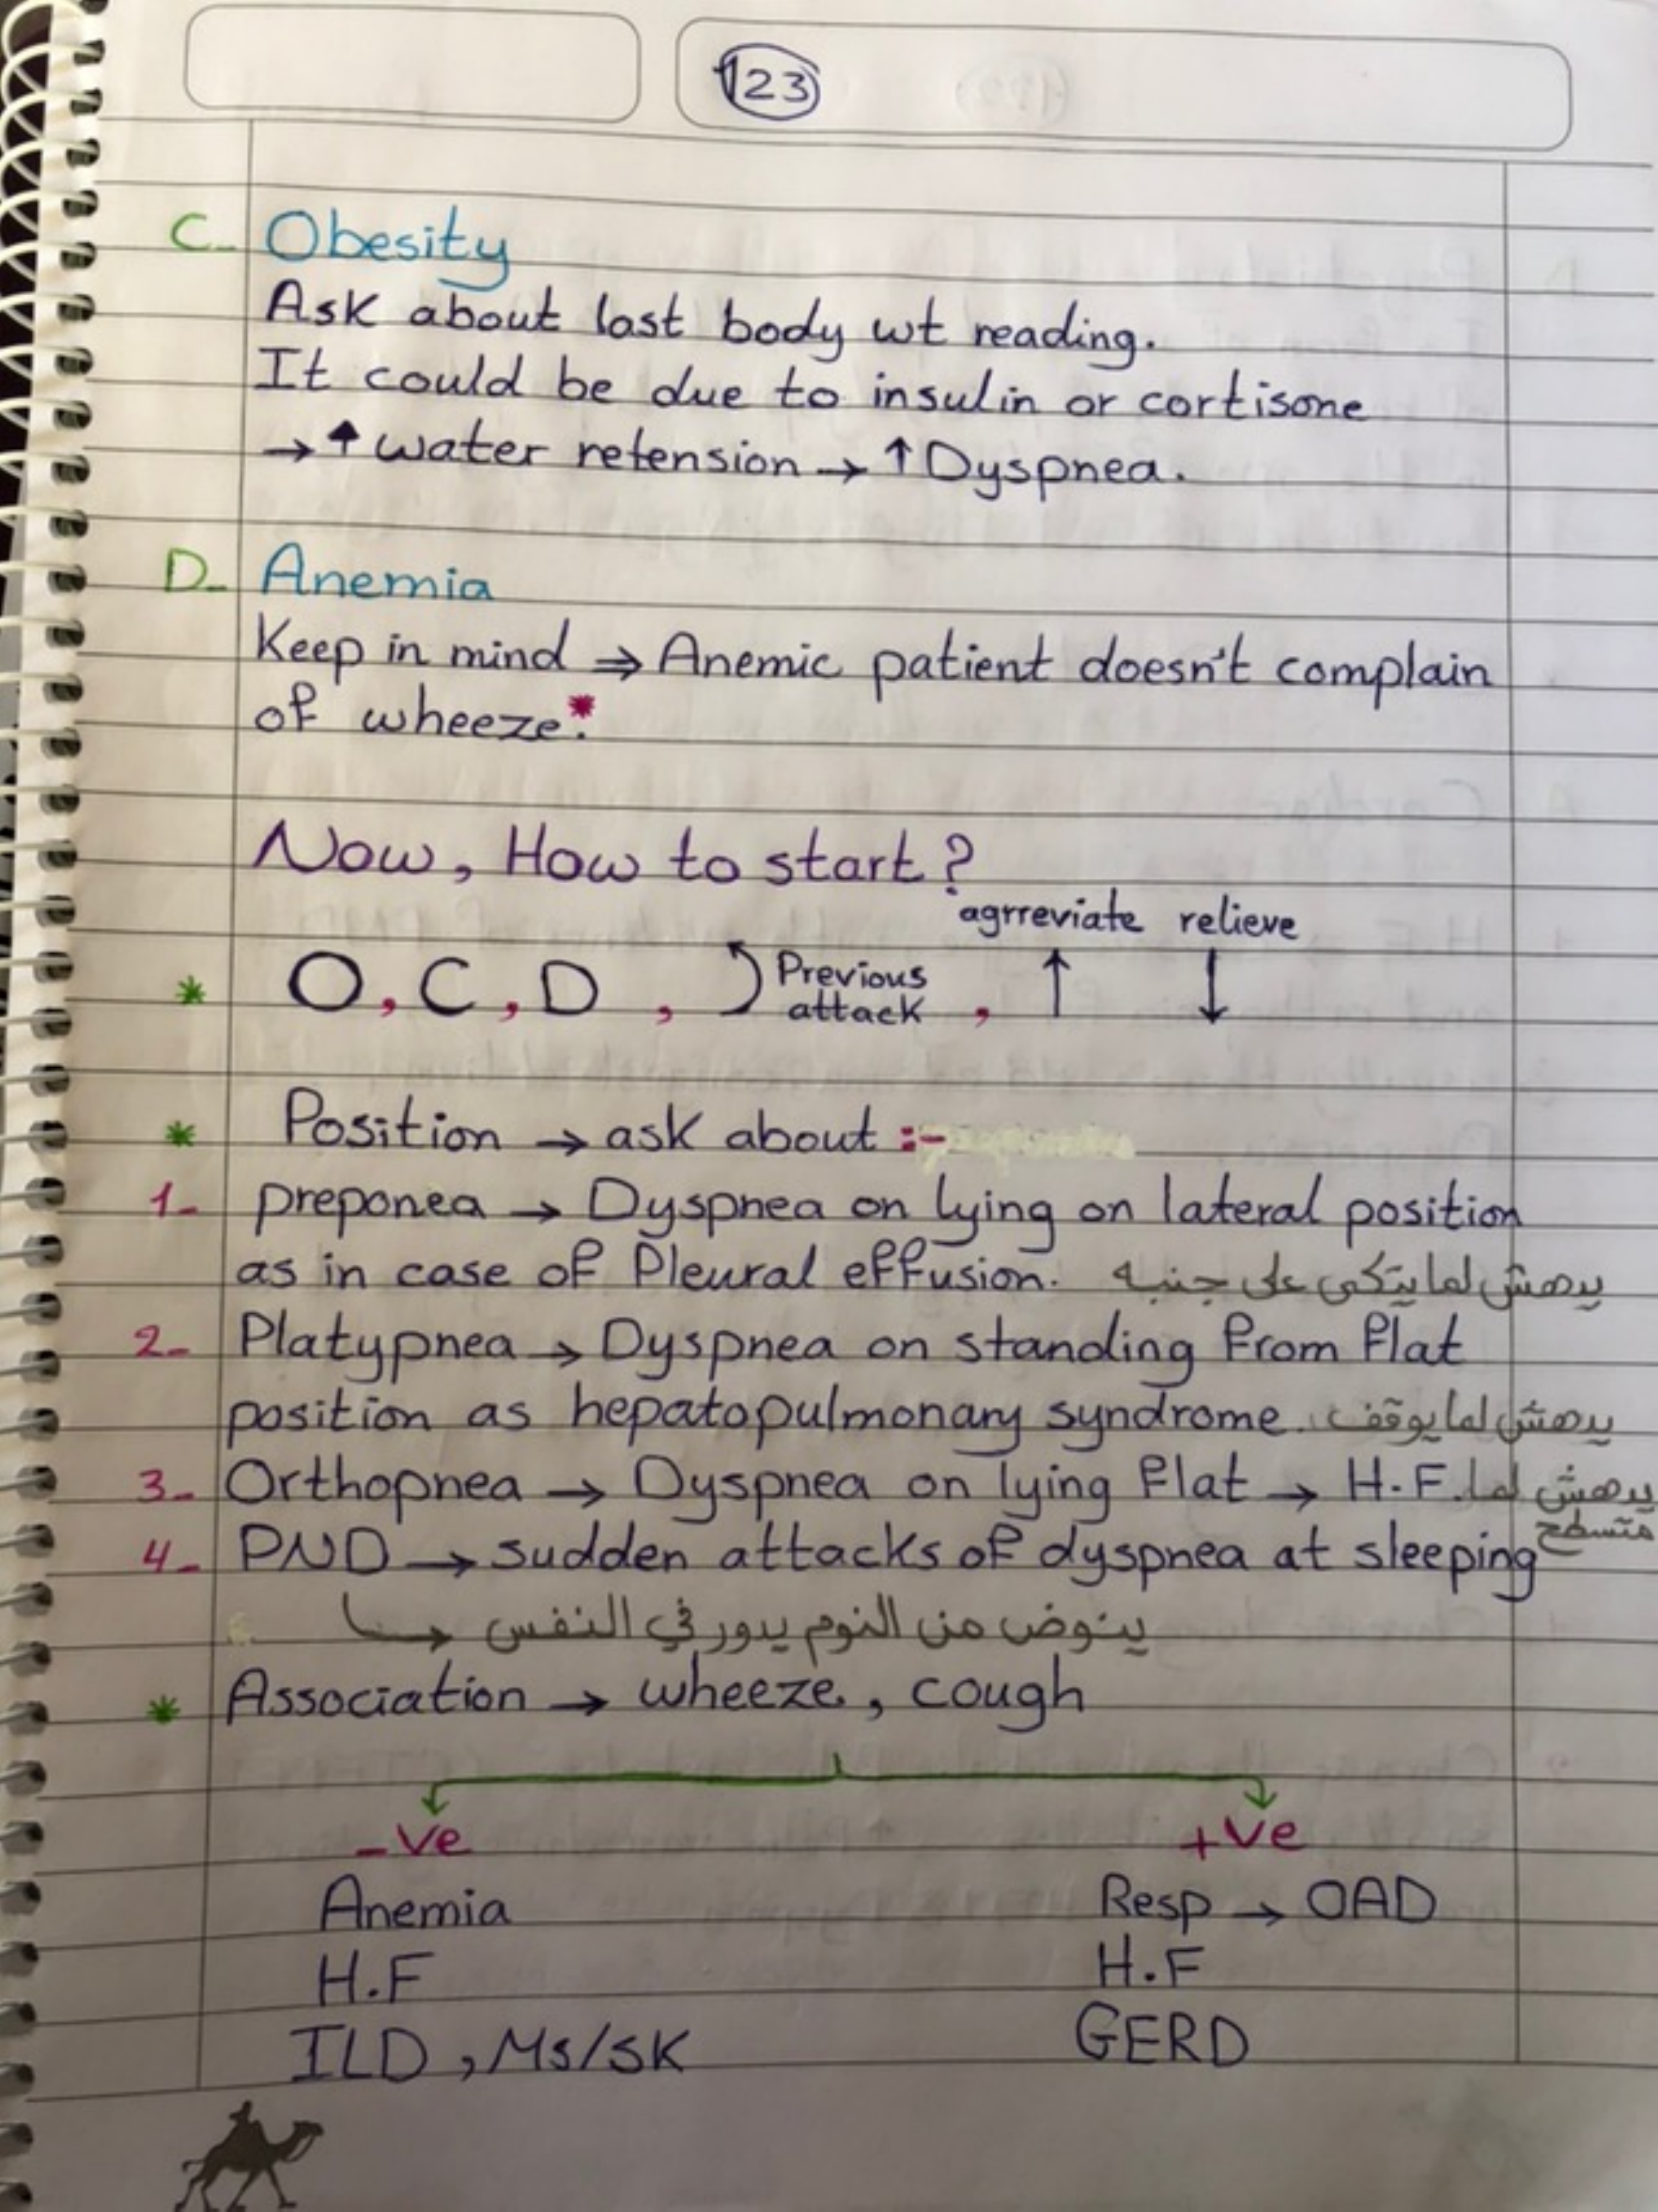 123
C- Obesity
Ask about last body wt reading.
It could be due to insulin or cortisone
→ ↑ water retension → ↑ Dyspnea.
D- Anemia
Keep in mind ⇒ Anemic patient doesn't complain
of wheeze.*
Now, How to start?
agrreviate relieve
* O, C, D , Previous attack , ↑ ↓
* Position → ask about :-
1- preponea → Dyspnea on lying on lateral position
as in case of Pleural effusion. يدهش لما يتكى على جنبه
2- Platypnea → Dyspnea on standing from flat
position as hepatopulmonary syndrome. يدهش لما يوقف
3- Orthopnea → Dyspnea on lying flat → H.F. يدهش لما
متسطح
4- PND → sudden attacks of dyspnea at sleeping
ينوض من النوم يدور في النفس
* Association → wheeze, cough
-ve +ve
Anemia Resp → OAD
H.F H.F
ILD, Ms/SK GERD